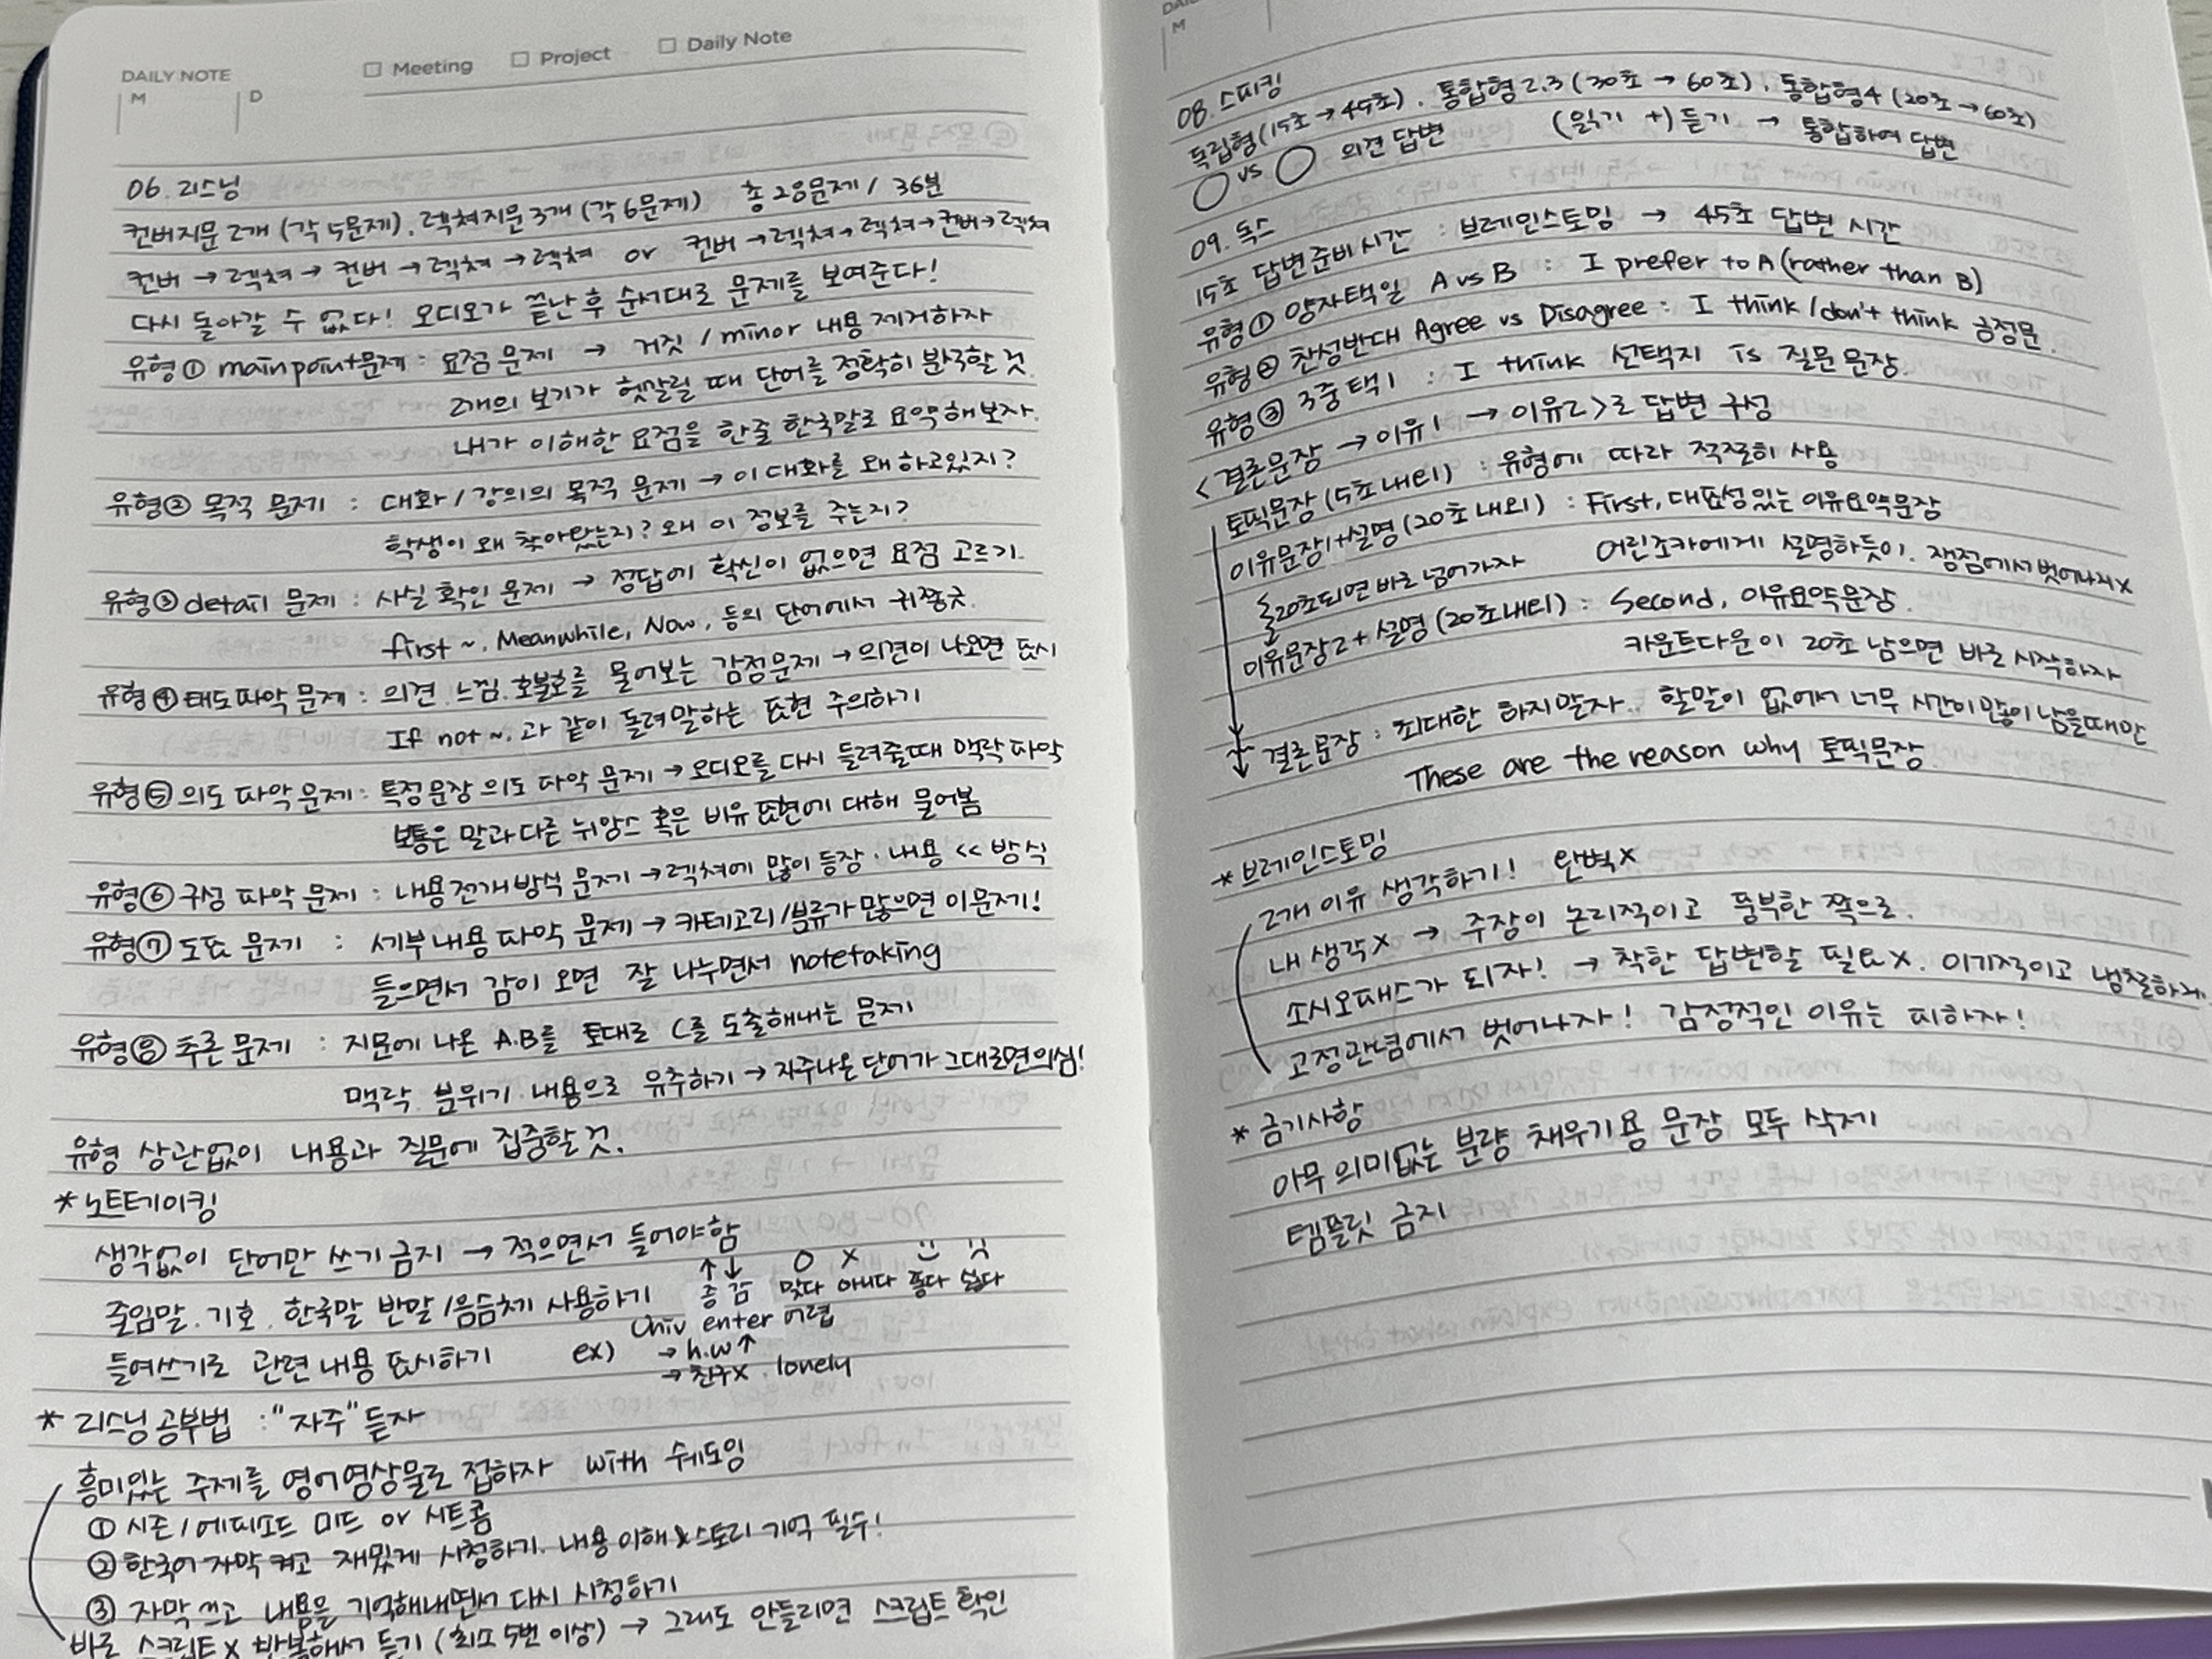 DAILY NOTE
M
D
□ Meeting □ Project □ Daily Note
06. 리스닝
컨버지문 2개 (각 5문제), 렉쳐지문 3개 (각 6문제) 총 28문제 / 36분
컨버 → 렉쳐 → 컨버 → 렉쳐 → 렉쳐 or 컨버 → 렉쳐 → 렉쳐 → 컨버 → 렉쳐
다시 돌아갈 수 없다! 오디오가 끝난 후 순서대로 문제를 보여준다!
유형① main point문제 : 요점 문제 → 거짓 / minor 내용 제거하자
2개의 보기가 헷갈릴 때 단어를 정확히 분석할 것.
내가 이해한 요점을 한줄 한국말로 요약해보자.
유형② 목적 문제 : 대화 / 강의의 목적 문제 → 이 대화를 왜 하고있지?
학생이 왜 찾아왔는지? 왜 이 정보를 주는지?
유형③ detail 문제 : 사실 확인 문제 → 정답에 확신이 없으면 요점 고르기.
first ~, Meanwhile, Now, 등의 단어에서 귀쫑긋.
유형④ 태도파악 문제 : 의견. 느낌. 호불호를 물어보는 감정문제 → 의견이 나오면 표시
If not ~. 과 같이 돌려말하는 표현 주의하기
유형⑤ 의도 파악 문제 : 특정문장 의도 파악 문제 → 오디오를 다시 들려줄때 맥락파악
보통은 말과 다른 뉘앙스 혹은 비유 표현에 대해 물어봄
유형⑥ 구성 파악 문제 : 내용전개방식 문제 → 렉쳐에 많이 등장. 내용 << 방식
유형⑦ 도표 문제 : 세부내용 파악 문제 → 카테고리/분류가 많으면 이문제!
들으면서 감이 오면 잘 나누면서 notetaking
유형⑧ 추론 문제 : 지문에 나온 A.B를 토대로 C를 도출해내는 문제
맥락. 분위기. 내용으로 유추하기 → 자주나온 단어가 그대로면 의심!
유형 상관없이 내용과 질문에 집중할 것.
* 노트테이킹
생각없이 단어만 쓰기 금지 → 적으면서 들어야함
↑ ↓ O X
줄임말. 기호. 한국말 반말 /음슴체 사용하기 증 감 맞다 아니다 좋다 싫다
Univ enter 어렵
들여쓰기로 관련 내용 표시하기 ex) → h.w↑
→ 친구X. lonely
* 리스닝 공부법 : "자주" 듣자
흥미있는 주제를 영어영상물로 접하자 with 쉐도잉
① 시즌 / 에피소드 미드 or 시트콤
② 한국어 자막 켜고 재밌게 시청하기. 내용 이해 & 스토리 기억 필수!
③ 자막 끄고 내용을 기억해내면서 다시 시청하기
바로 스크립트 X 반복해서 듣기 (최소 5번 이상) → 그래도 안들리면 스크립트 확인
M
08. 스피킹
독립형(15초 → 45초). 통합형 2.3 (30초 → 60초). 통합형4 (20초 → 60초)
○ vs ○ 의견 답변 (읽기 +) 듣기 → 통합하여 답변
09. 독스
15초 답변준비시간 : 브레인스토밍 → 45초 답변 시간
유형① 양자택일 A vs B : I prefer to A (rather than B)
유형② 찬성반대 Agree vs Disagree : I think / don't think 긍정문.
유형③ 3중택1 : I think 선택지 is 질문문장.
<결론문장 → 이유1 → 이유2>로 답변 구성
토픽문장 (5초 내외) : 유형에 따라 적절히 사용
이유문장1+설명 (20초 내외) : First, 대표성있는 이유요약문장
어린조카에게 설명하듯이. 쟁점에서 벗어나지x
20초되면 바로 넘어가자
이유문장2 + 설명 (20초내외) : Second, 이유요약문장.
카운트다운이 20초 남으면 바로 시작하자
결론문장 : 최대한 하지말자.. 할말이 없어서 너무 시간이 많이 남을때만
These are the reason why 토픽문장
* 브레인스토밍
2개 이유 생각하기! 완벽X
내 생각X → 주장이 논리적이고 풍부한 쪽으로.
소시오패스가 되자! → 착한 답변할 필요X. 이기적이고 냉철하게.
고정관념에서 벗어나자! 감정적인 이유는 피하자!
* 금기사항
아무 의미없는 분량 채우기용 문장 모두 삭제
템플릿 금지